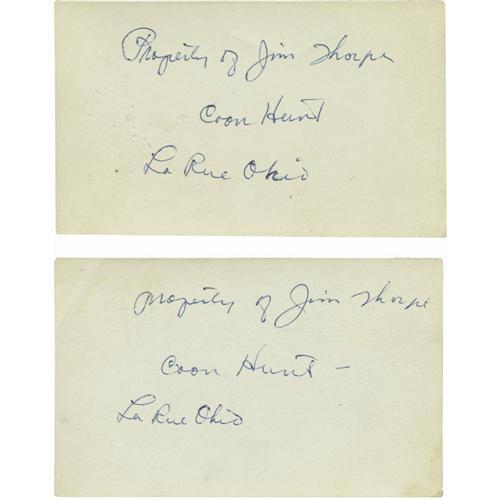 Property of Jim Thorpe
Coon Hunt
La Rue Ohio
Property of Jim Thorpe
Coon Hunt –
La Rue Ohio